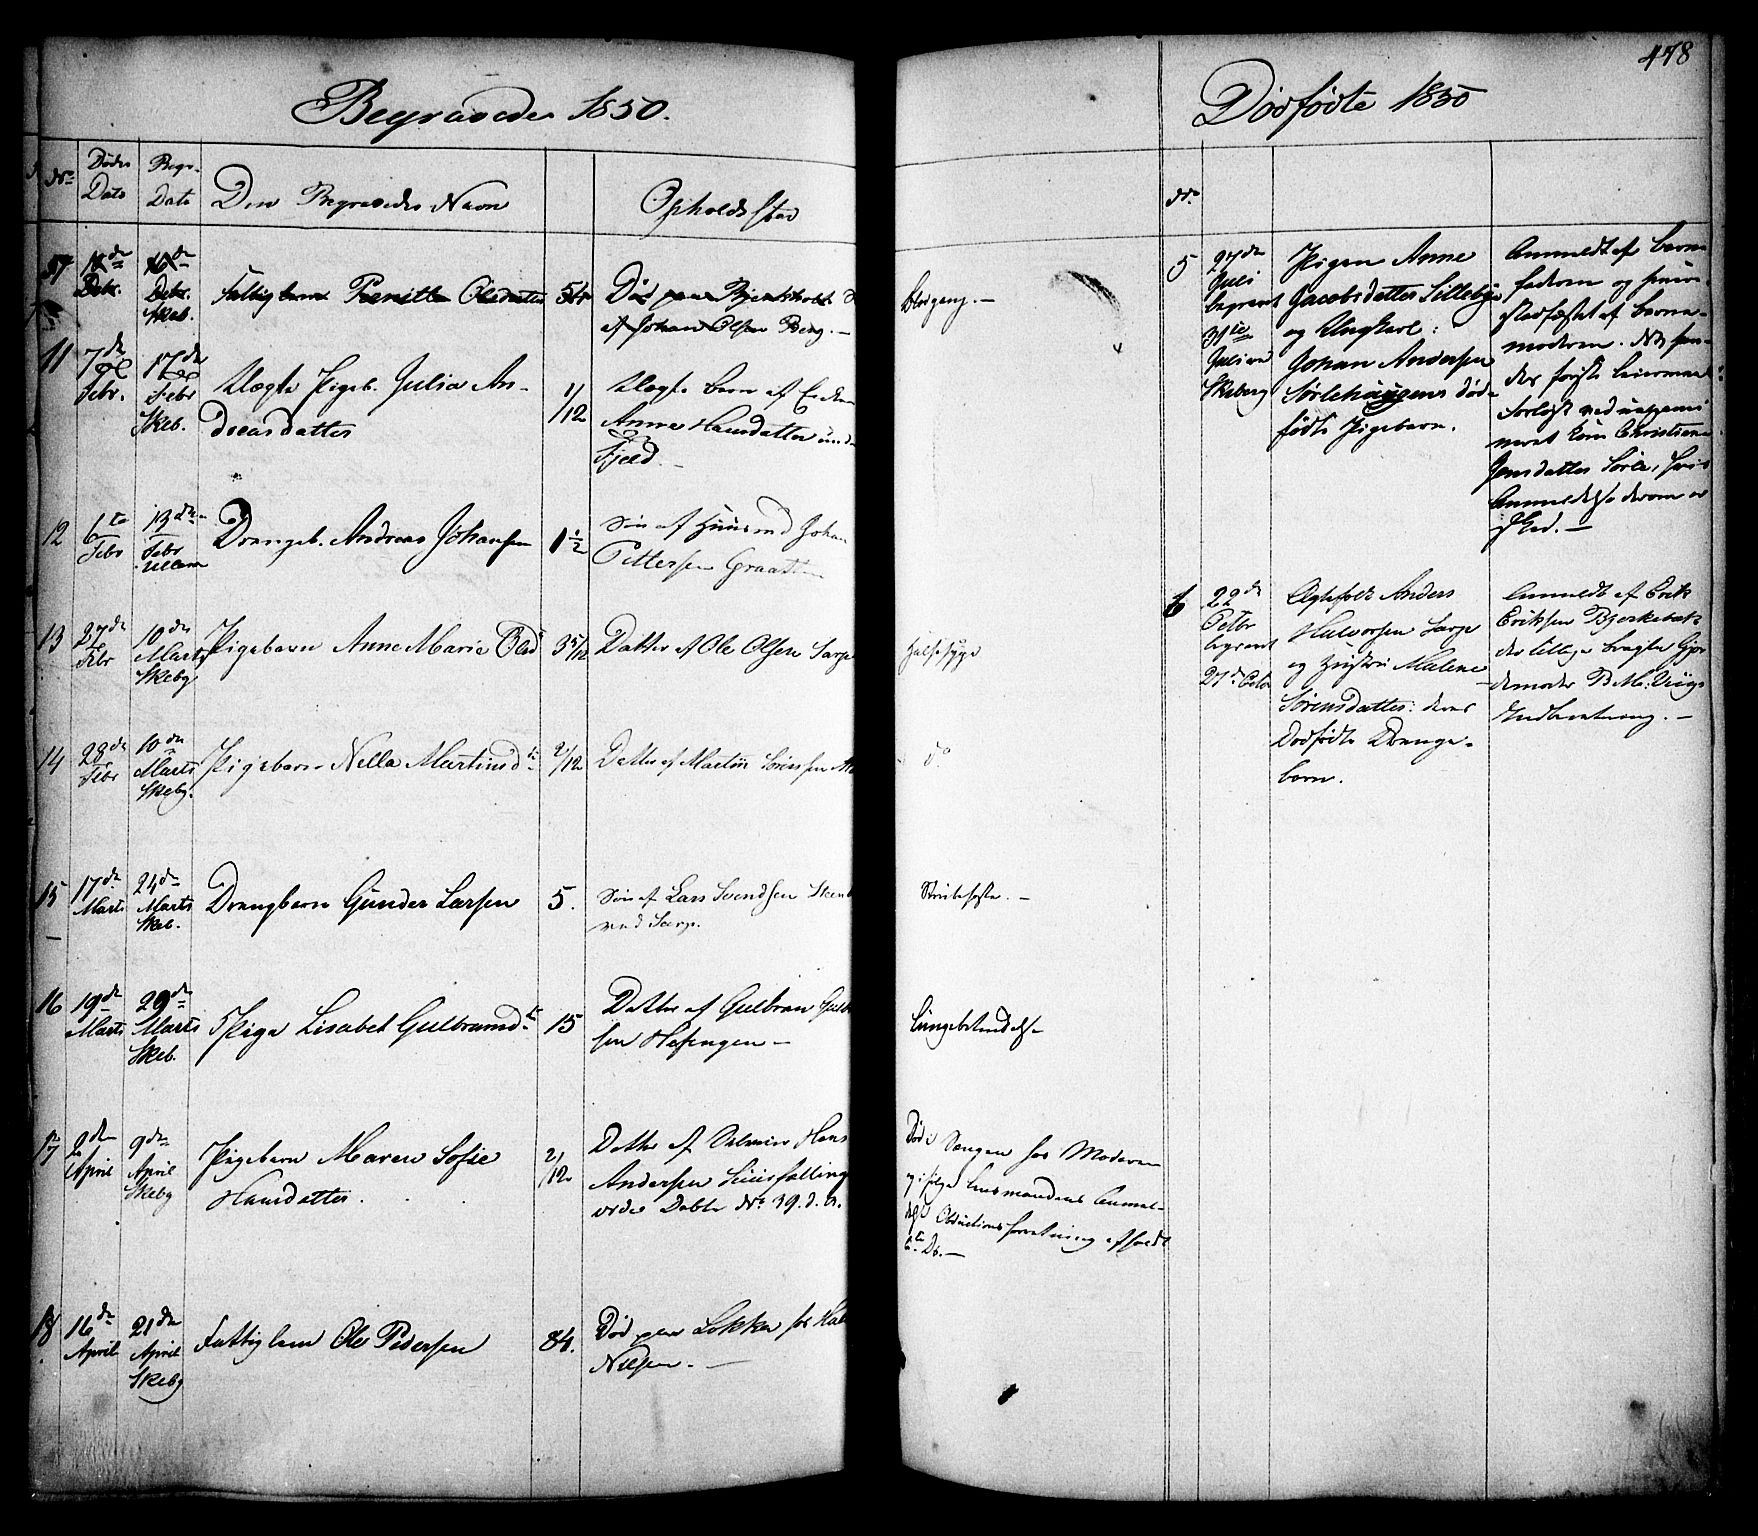 478
Begravede 1850.
No
Døds
Dato
Begr.
Dato
Den Begravedes Navn
Opholdssted
57
Debr.
Debr.
Skeb.
Fattiglem Pernille Olsdatter
54
Død paa
af Johan Olsen Berg. —
Blodgang. —
11
7de
Febr.
17de
Febr
Skeb.
Uægte Pigeb. Julia An-
dreasdatter
1/12
Uægte Barn af
Anne Hansdatter under
Fjeld. —
12
6te
Febr
13de
Febr
Ullerø
Drengeb. Andreas Johansen
1 1/2
Søn af Huusmd Johan
Pettersen Graatten
13
27de
Febr
10de
Marts
Skebg
Pigebarn Anne Marie Olsd
3 5/12
Datter af Ole Olsen Sarp
Halsesyge
14
28de
Febr
10de
Marts
Skebg.
Pigebarn Nella Martinsdtr
2/12
Datter af Martin
do
15
17de
Marts
24de
Marts
Skeb.
Drengbarn Gunder Larsen
5.
Søn af Lars Svendsen
ved Sarp.
Strubehoste. —
16
19de
Marts
29de
Marts
Skeb.
Pige Lisabet Gulbransdtr
15
Datter af Gulbran
sen Hafengen —
Lungebetændelse
17
2den
April
9de
April
Skebg
Pigebarn Maren Sofie
Hansdatter.
2/12
Datter af Hans
Andersen
vide Døbte No 39. d. A.
Død i Sengen hos Moderen
og ifølge Lensmandens Anmel-
delse Obductionsforretning afholdt
6te Ds. —
18
16de
April
21de
April
Skebg
Fattiglem Ole Pedersen
84.
Død paa Løkken hos
Nilsen. —
Dødfødte 1850
No
5
27de
Juli
begravet
31te
Juli ved
Skeberg
Pigen Anne
Jacobsdatter Lilleby
og Ungkarl:
Johan Andersen
Sørlehaugens død-
fødte Pigebarn.
Anmeldt af Barne
faderen og
stadfæstet af Barne-
moderen.
der første Leiermaal
Forløst ved uexami-
neret Kone Christiane
Jensdatter Sørli, hvis
Anmeldelse derom er
skeed. —
6
22de
Octbr
begravet
27de Octbr
Ægtefolk Anders
Halvorsen Sarp
og Hustru Malene
Sørensdatter: deres
Dødfødte Drenge-
barn.
Anmeldt af Erik
Eriksen Bjerkebæk
der tillige bragte Gjor
demoder B. M. Viigs
Indberetning. —